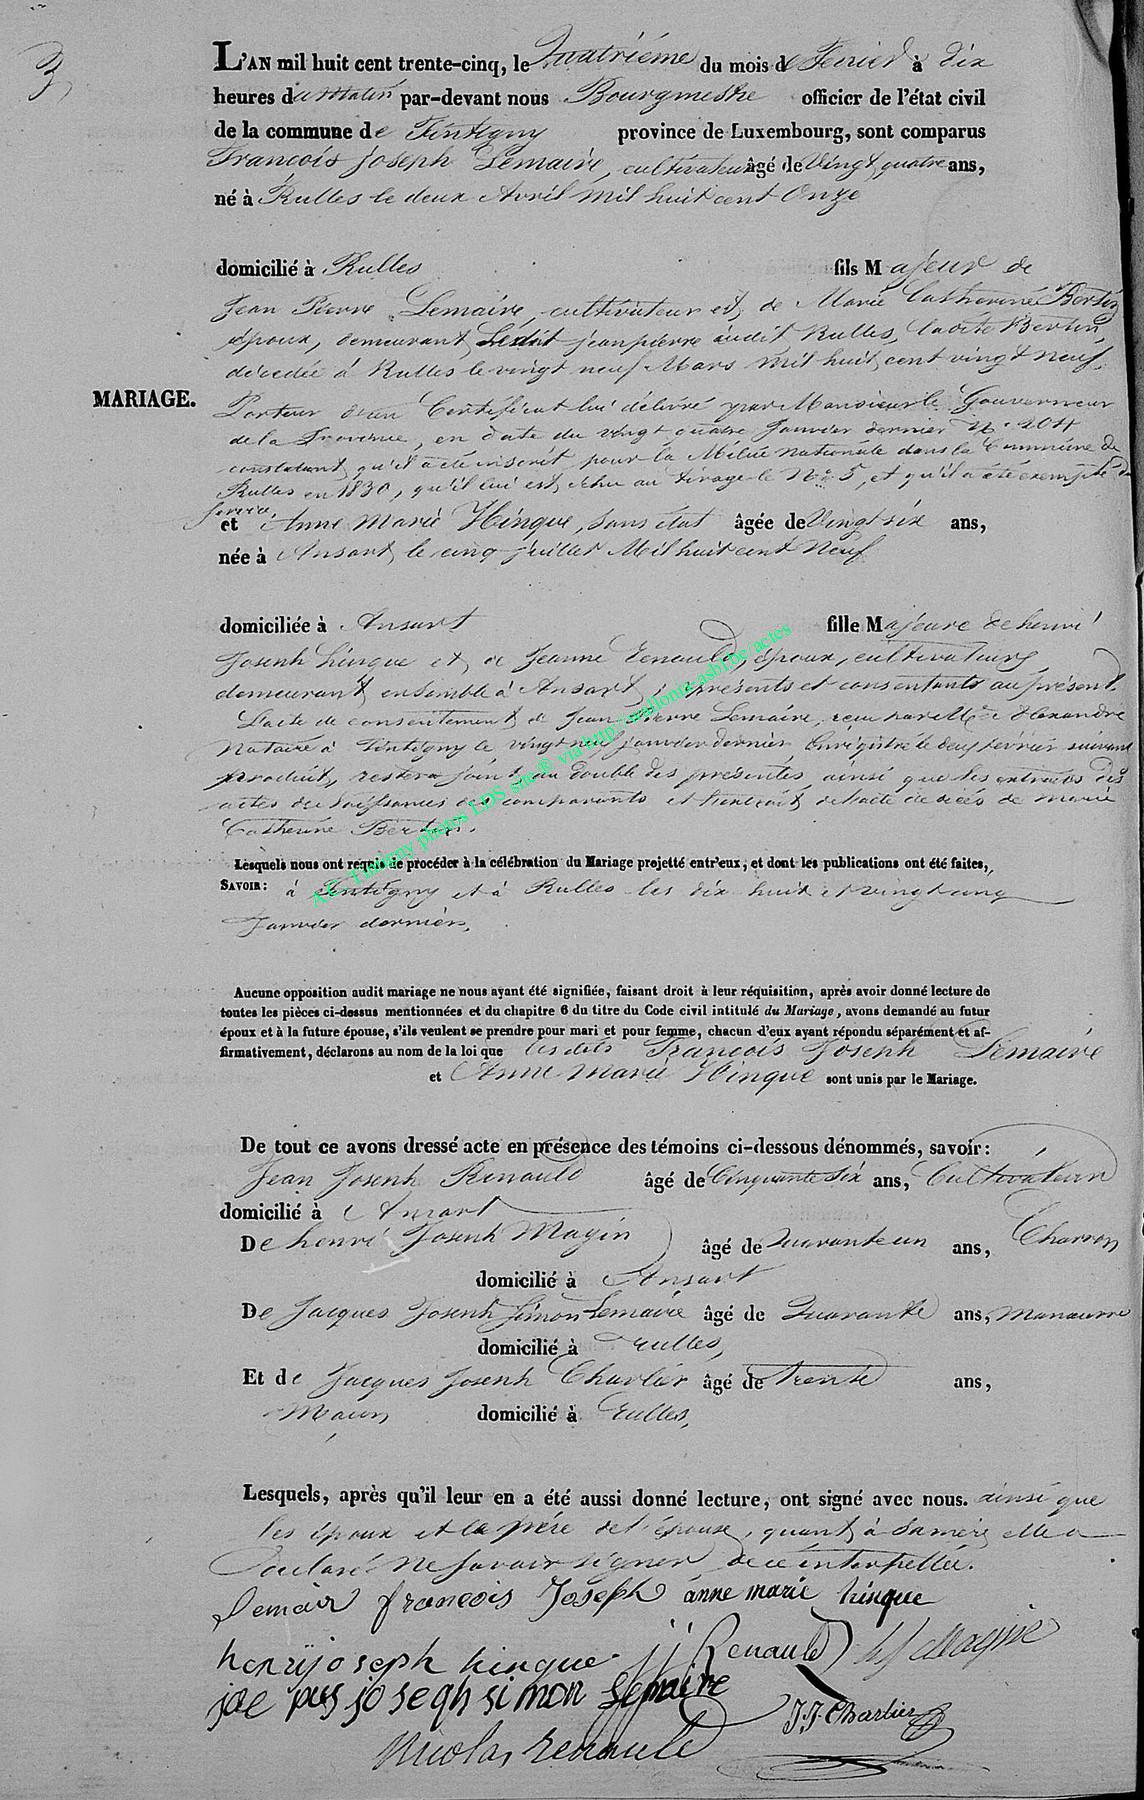 3
L'AN mil huit cent trente-cinq, le Quatriéme du mois de Fevrier à dix
heures du Matin par-devant nous Bourgmestre officier de l'état civil
de la commune de Tintigny province de Luxembourg, sont comparus
Francois Joseph Lemaire, cultivateur âgé de Vingt quatre ans,
né à Rulles le deux Avril mil huit cent Onze
domicilié à Rulles fils Majeur de
Jean Pierre Lemaire, cultivateur et de Marie Catherine Bertin
époux, demeurant Ledit jean pierre audit Rulles, Ladite Bertin
décedée à Rulles le vingt neuf Mars mil huit cent vingt neuf,
MARIAGE.
Porteur d'un Certificat lui délivré par Monsieur le Gouverneur
de la Province, en date du vingt quatre Janvier dernier N° 204
constatant qu'il a été inscrit pour la Milice nationale dans la Commune de
Rulles en 1830, qu'il lui est échu au tirage le N° 5, et qu'il a été exempté du
service,
et Anne Marie Hinque, sans état âgée de Vingt six ans,
née à Ansart le cinq juillet Mil huit cent Neuf
domiciliée à Ansart fille Majeure de henri
Joseph hinque et de Jeanne Renauld, époux, cultivateurs
demeurant ensemble à Ansart, présents et consentants au présent.
L'acte de consentement de Jean Pierre Lemaire, reçu par Me Alexandre
Notaire à Tintigny le vingt neuf janvier dernier Enrégistré le deux fevrier suivant
produit, restera joint au double des présentes, ainsi que les extraits des
actes de Naissances des comparants et l'extrait de l'acte de décés de Marie
Catherine Bertin.
Lesquels nous ont requis de procéder à la célébration du Mariage projetté entr'eux, et dont les publications ont été faites,
SAVOIR: à Tintigny et à Rulles les dix huit et vingt cinq
Janvier dernier,
Aucune opposition audit mariage ne nous ayant été signifiée, faisant droit à leur réquisition, après avoir donné lecture de
toutes les pièces ci-dessus mentionnées et du chapitre 6 du titre du Code civil intitulé du Mariage, avons demandé au futur
époux et à la future épouse, s'ils veulent se prendre pour mari et pour femme, chacun d'eux ayant répondu séparément et af-
firmativement, déclarons au nom de la loi que les dits Francois Joseph Lemaire
et Anne Marie Hinque sont unis par le Mariage.
De tout ce avons dressé acte en présence des témoins ci-dessous dénommés, savoir:
Jean Joseph Renauld âgé de Cinquante six ans, Cultivateur
domicilié à Ansart
De henri Joseph Magin âgé de quarante un ans, Charron
domicilié à Ansart
De Jacques Joseph Simon Lemaire âgé de Quarante ans, manœuvre
domicilié à Rulles,
Et de Jacques Joseph Charlier âgé de trente ans,
Maçon domicilié à Rulles,
Lesquels, après qu'il leur en a été aussi donné lecture, ont signé avec nous. ainsi que
les époux et le pére de l'épouse, quant à sa mère elle a
Declaré Ne savoir signer de ce interpellée.
Lemair francois Joseph anne marie hinque
henrijoseph hinque. jj Renauld hj Magin
jacpues joseph simon Lemaire J.J. Charlier
Nicolas Renauld
AC Tintigny photos LDS site® via http://wallonia-asbl.be/actes